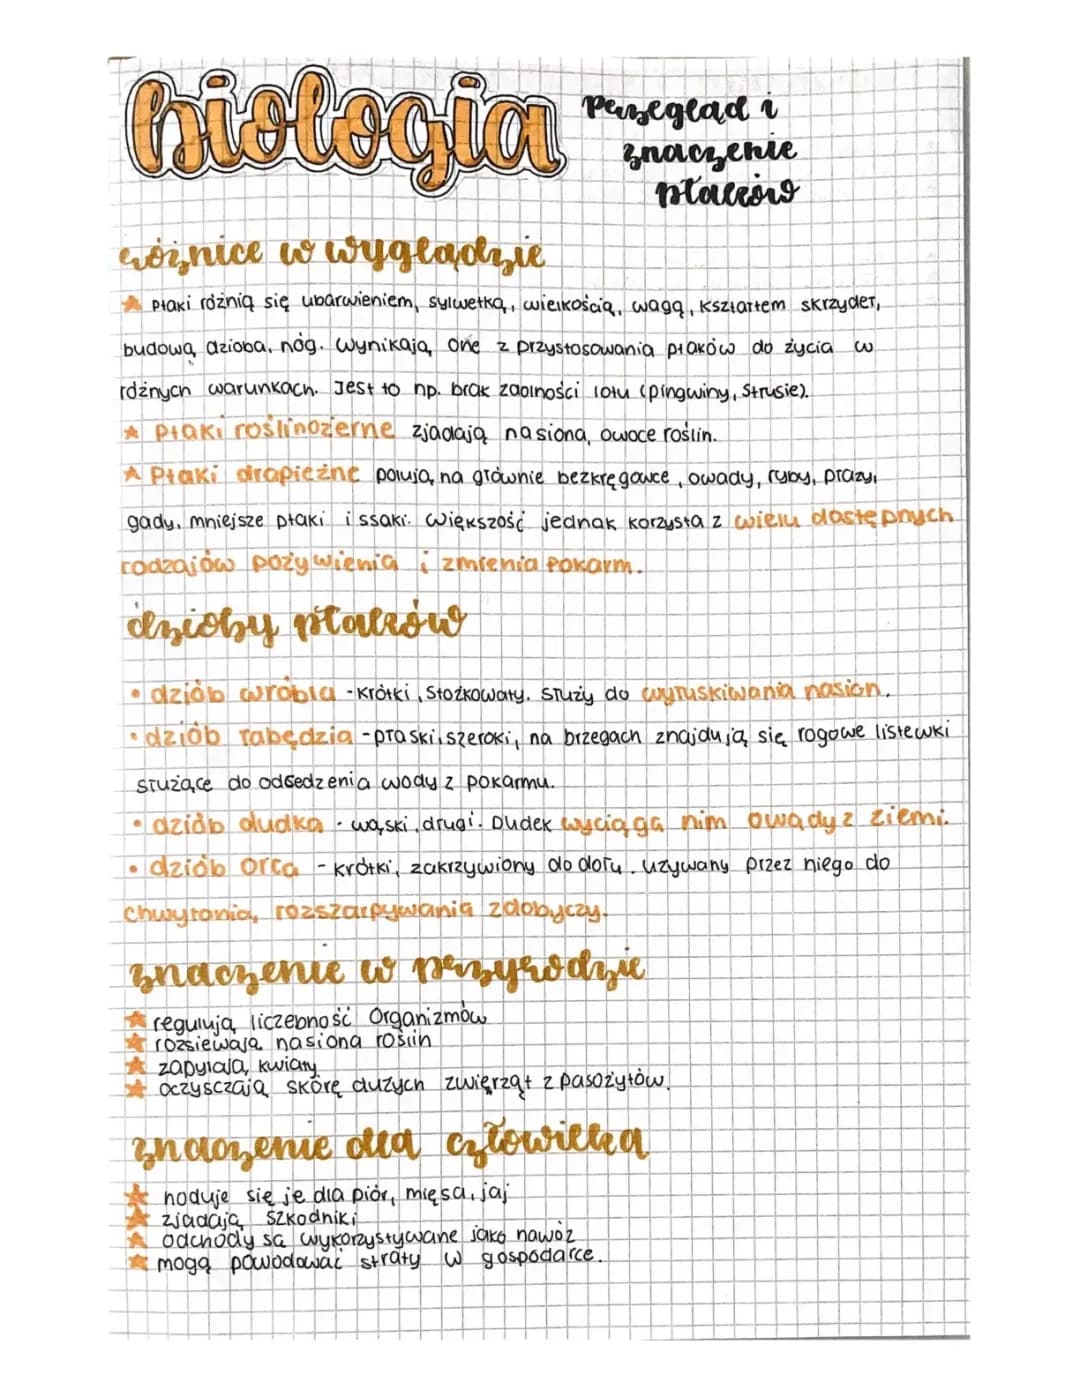 biologia
Przegląd i
znaczenie
ptaków
różnice w wyglądzie
Ptaki różnią się ubarwieniem, sylwetką, wielkością, wagą, kształtem skrzydeł,
budową dzioba, nóg. Wynikają one z przystosowania ptaków do życia w
różnych warunkach. Jest to np. brak zdolności lotu (pingwiny, strusie).
Ptaki roślinożerne zjadają nasiona, owoce roślin.
Ptaki drapieżne polują na głównie bezkręgowce, owady, ryby, płazy,
gady, mniejsze ptaki i ssaki. Większość jednak korzysta z wielu dostępnych
rodzajów pożywienia i zmienia pokarm.
dzioby ptaków
• dziób wróbla - krótki, stożkowaty. Służy do wyłuskiwania nasion.
• dziób łabędzia - płaski, szeroki, na brzegach znajdują się rogowe listewki
służące do odsedzenia wody z pokarmu.
• dziób dudka - wąski, długi. Dudek wyciąga nim owady z ziemi.
• dziób orła - krótki, zakrzywiony do dołu. używany przez niego do
chwytania, rozszarpywania zdobyczy.
znaczenie w przyrodzie
regulują liczebność Organizmów
rozsiewają nasiona roślin
zapylają kwiaty
oczyszczają skórę dużych zwierząt z pasożytów.
znaczenie dla człowieka
hoduje się je dla piór, mięsa, jaj
zjadają szkodniki
odchody są wykorzystywane jako nawóz
mogą powodować straty w gospodarce.